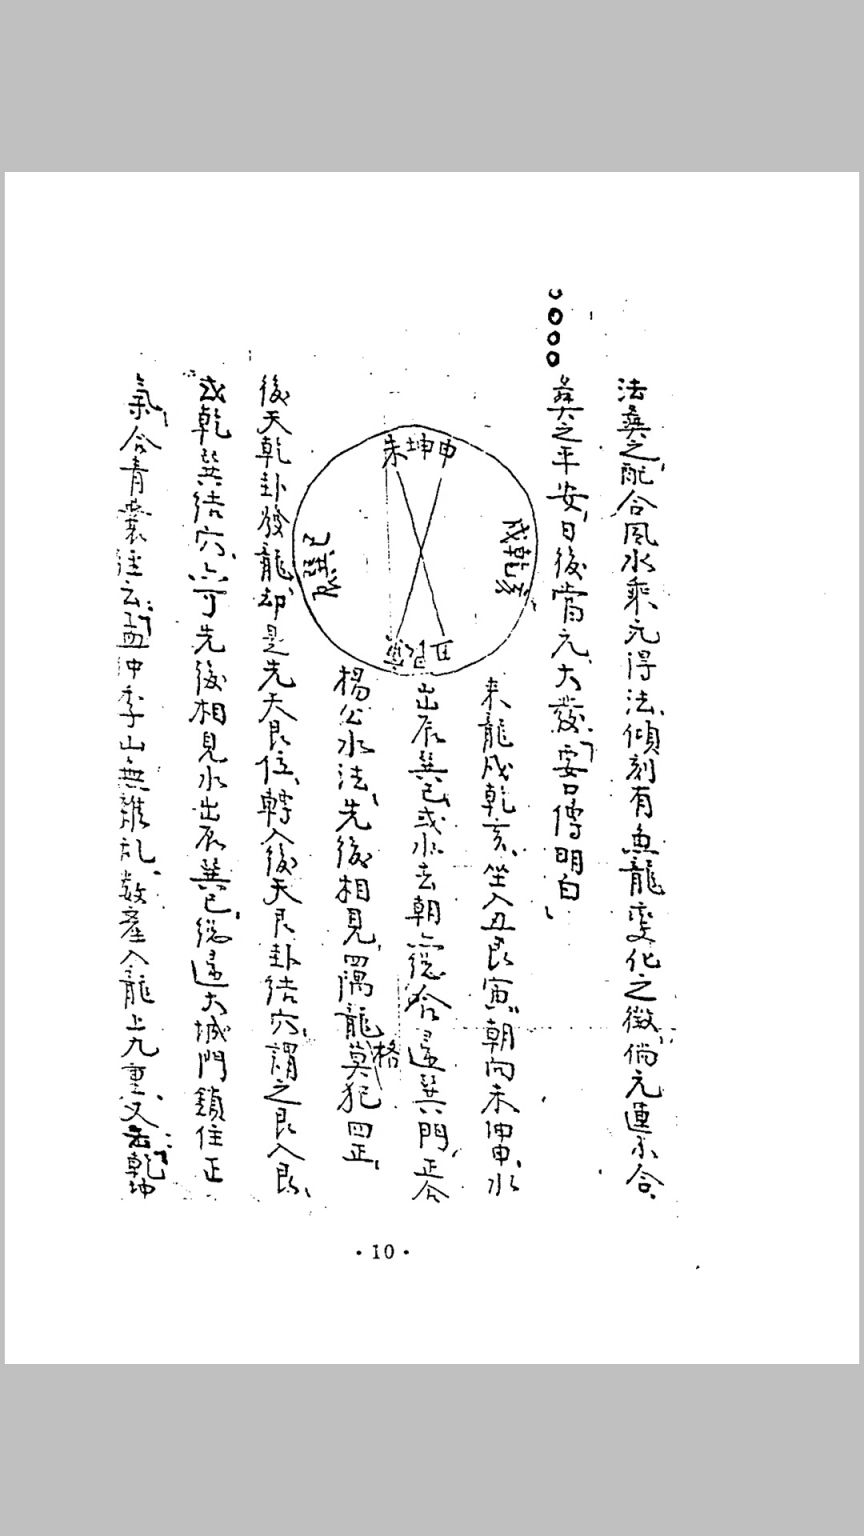 法葬之、配合風水乘元得法、傾刻有魚龍變化之徵、倘元運不合、
葬之平安、日後當元、大發、要口傳明白、
未坤申
戌乾亥
辰巽巳
丑艮
來龍戌乾亥、坐入丑艮寅、朝向未坤申、水
出辰巽巳、或水去朝、總合 巽門、正合
楊公水法、先後相見、四隅龍格莫犯四正、
後天乾卦發龍、却是先天艮位、轉入後天艮卦結穴、謂之艮入艮、
或乾巽結穴、亦可先後相見水出辰巽巳、總 大城門鎖住正
氣、合青囊 云、孟仲季山無雜亂、数產入龍上九重、又云乾坤
·10·